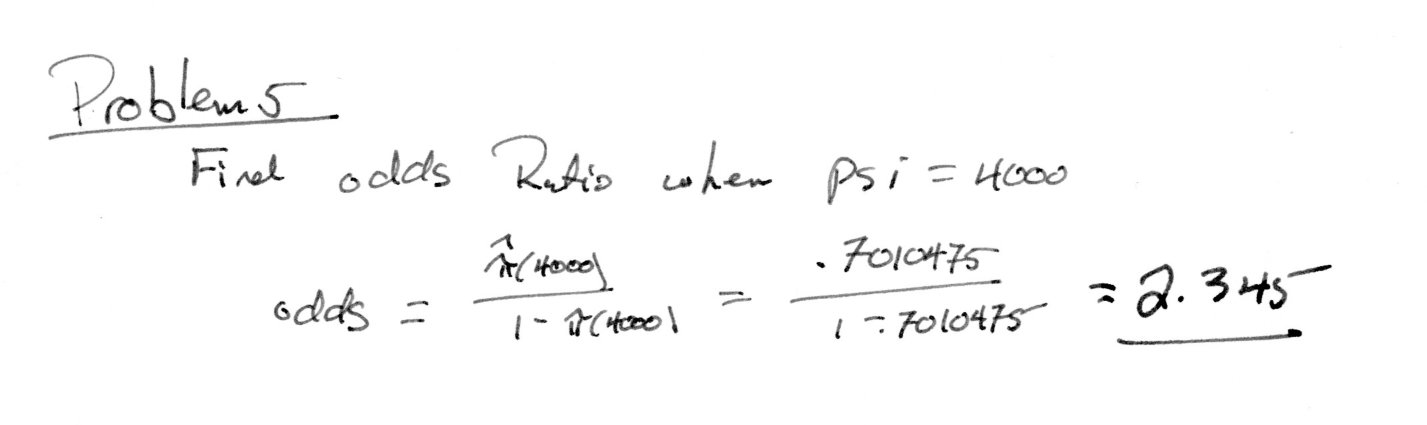 Problem 5
Find odds Ratio when psi = 4000
odds = π̂(4000) / 1 - π̂(4000) = .7010475 / 1 - .7010475 = 2.345